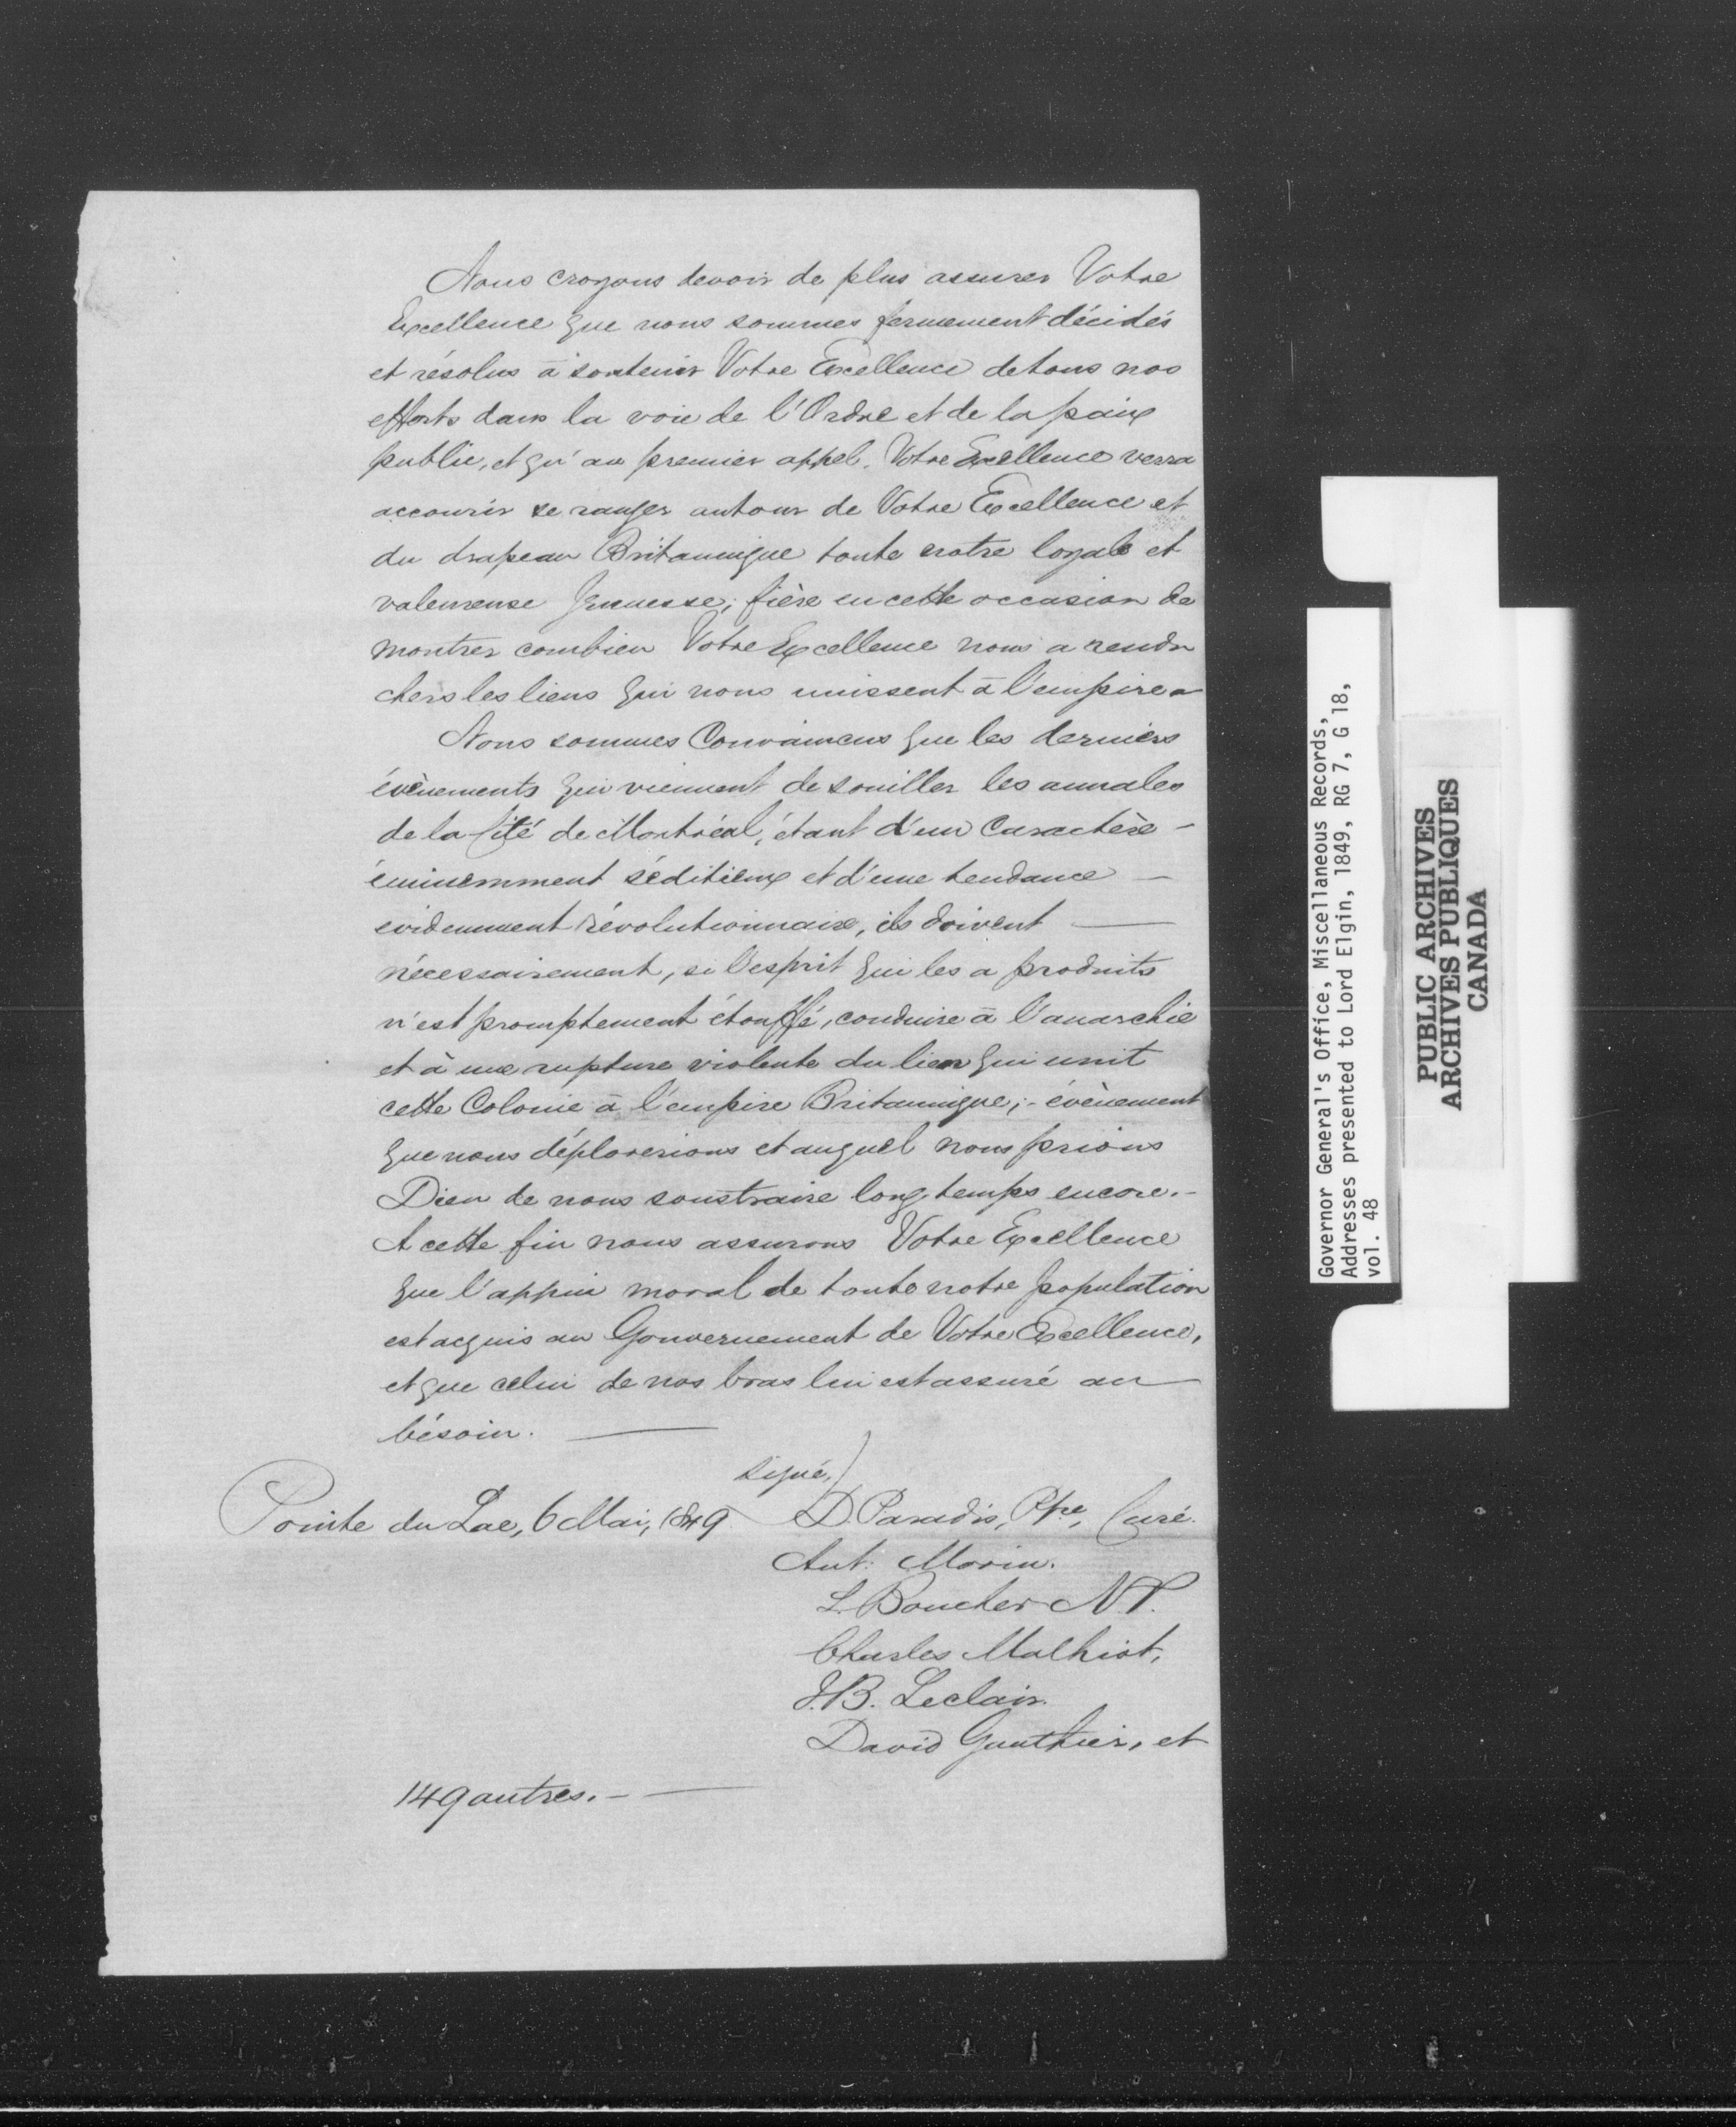 Nous croyons devoir de plus assurer Votre
Excellence que nous sommes fermement décidés
et résolus à soutenir Votre Excellence de tous nos
efforts dans la voie de l'Ordre et de la paix
public, et qu'au premier appel, Votre Excellence verra
accourir se ranger autour de Votre Excellence et
du drapeau Britannique toute notre loyale et
valeureuse Jeunesse; fière en cette occasion de
montrer combien Votre Excellence nous a rendu
chers les liens qui nous unissent à l'empire
Nous sommes Convaincus que les derniers
évènements qui viennent de souiller les annales
de la Cité de Montréal, étant d'un Caractère -
éminemment séditieux et d'une tendance -
evidemment révolutionnaire, ils doivent -
nécessairement, si l'esprit qui les a produits
n'est promptement étouffé, conduire à l'anarchie
et à une rupture violente du lien qui unit
cette Colonie à l'empire Britannique; - évènement
que nous déplorerions et auquel nous prions
Dieu de nous soustraire longtemps encore. -
A cette fin nous assurons Votre Excellence
que l'appui moral de toute notre population
est acquis au Gouvernement de Votre Excellence,
et que celui de nos bras lui est assuré au
bésoin. -
signé,)
Pointe du Lac, 6 Mai, 1849. D. Paradis, Ptre, Curé.
Ant. Morin.
L. Boucher N.P.
Charles Malhiot,
J.B. Leclair.
David Gauthier, et
149 autres. - -
Governor General's Office, Miscellaneous Records,
Addresses presented to Lord Elgin, 1849, RG 7, G 18,
vol. 48
PUBLIC ARCHIVES
ARCHIVES PUBLIQUES
CANADA